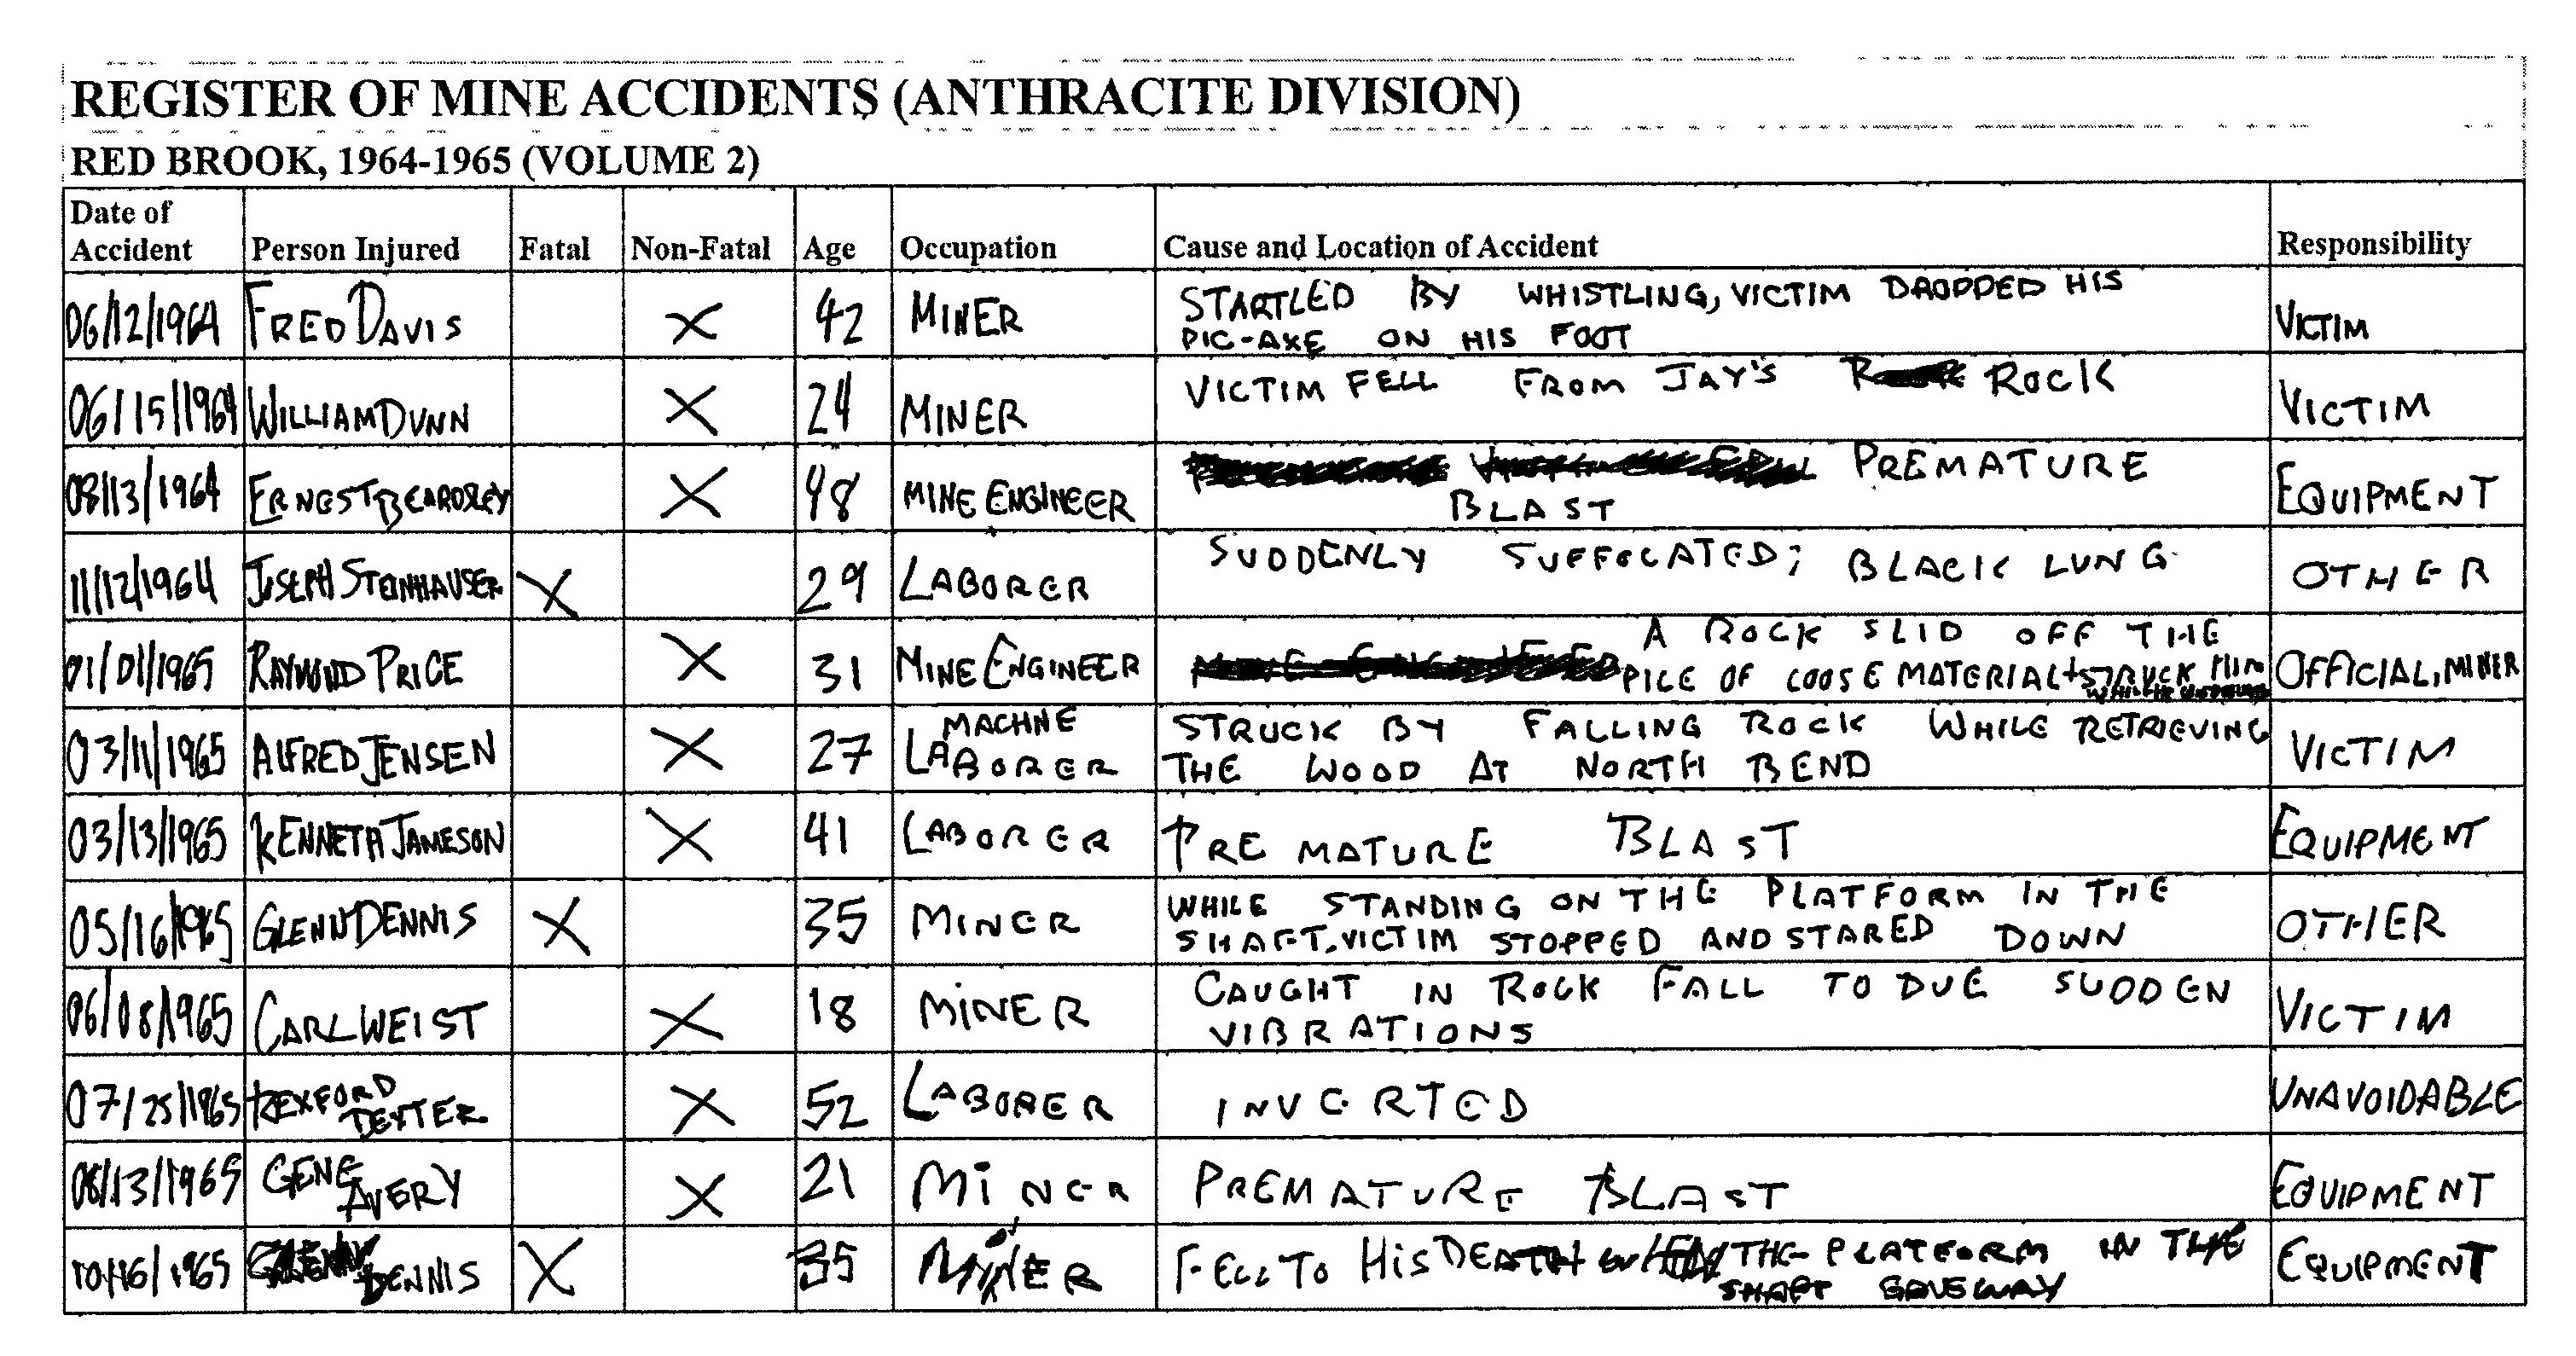 REGISTER OF MINE ACCIDENTS (ANTHRACITE DIVISION)
RED BROOK, 1964-1965 (VOLUME 2)
Date of Accident Person Injured Fatal Non-Fatal Age Occupation Cause and Location of Accident Responsibility
06/12/1964 FRED DAVIS X 42 MINER STARTLED BY WHISTLING, VICTIM DROPPED HIS
PIC-AXE ON HIS FOOT VICTIM
06/15/1964 WILLIAM DUNN X 24 MINER VICTIM FELL FROM JAY'S ROCK VICTIM
08/13/1964 ERNEST BEARDSLEY X 48 MINE ENGINEER PREMATURE
BLAST EQUIPMENT
11/12/1964 JOSEPH STEINHAUSER X 29 LABORER SUDDENLY SUFFOCATED; BLACK LUNG OTHER
01/01/1965 RAYMOND PRICE X 31 MINE ENGINEER A ROCK SLID OFF THE
PILE OF LOOSE MATERIAL + STRUCK HIM OFFICIAL, MINER
03/11/1965 ALFRED JENSEN X 27 MACHNE LABORER STRUCK BY FALLING ROCK WHILE RETRIEVING
THE WOOD AT NORTH BEND VICTIM
03/13/1965 KENNETH JAMESON X 41 LABORER PREMATURE BLAST EQUIPMENT
05/16/1965 GLENN DENNIS X 35 MINER WHILE STANDING ON THE PLATFORM IN THE
SHAFT, VICTIM STOPPED AND STARED DOWN OTHER
06/08/1965 CARL WEIST X 18 MINER CAUGHT IN ROCK FALL TO DUE SUDDEN
VIBRATIONS VICTIM
07/25/1965 REXFORD DEXTER X 52 LABORER INVERTED UNAVOIDABLE
08/13/1965 GENE AVERY X 21 MINER PREMATURE BLAST EQUIPMENT
10/16/1965 GLENN DENNIS X 35 MINER FELL TO HIS DEATH WHEN THE PLATFORM IN THE
SHAFT GAVE WAY EQUIPMENT